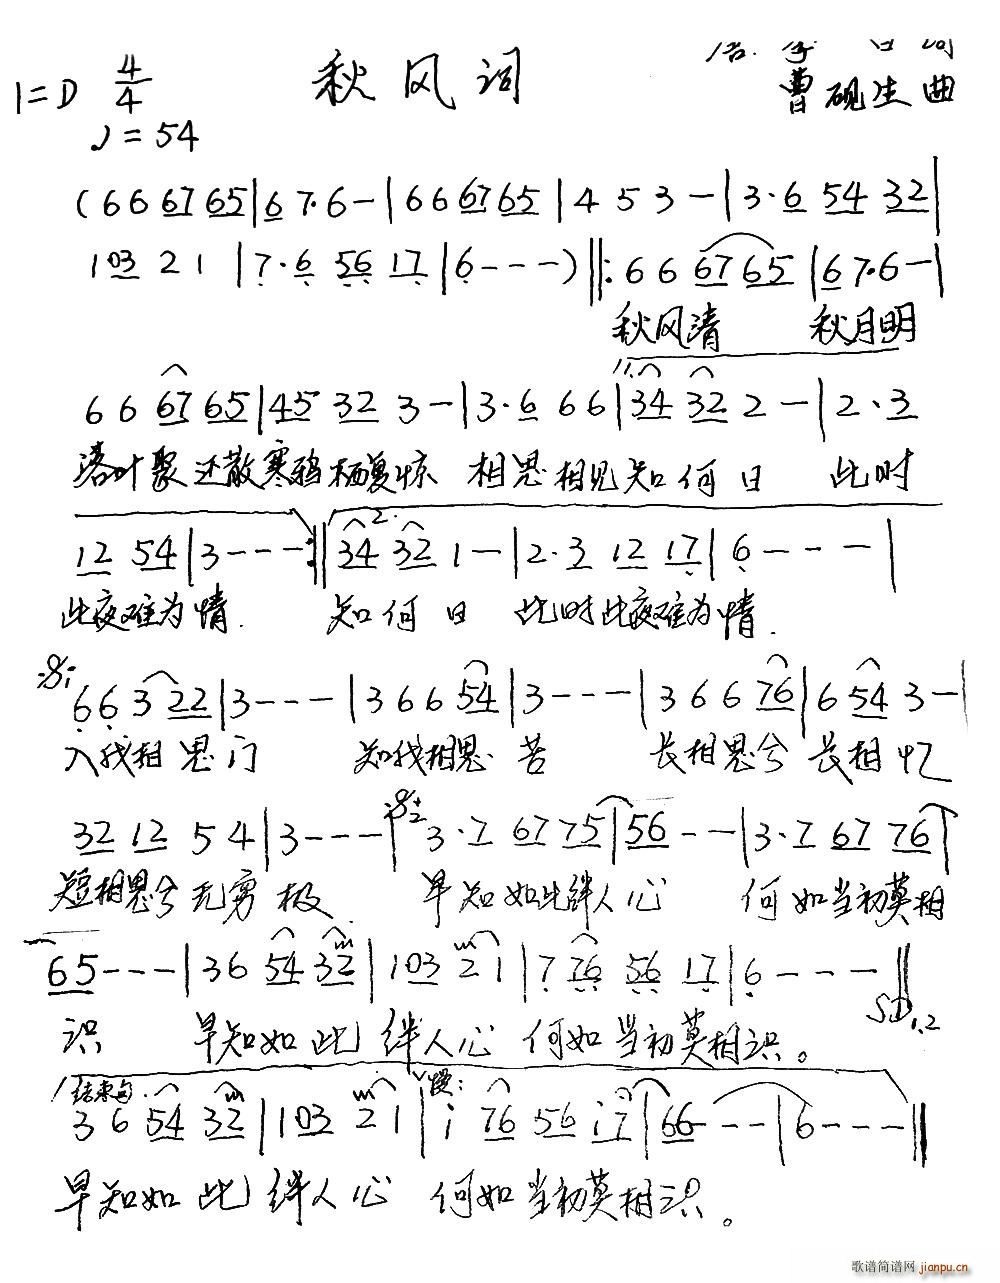 秋风词
唐·李白词
曹砚生曲
1=D 4/4
♩=54
(6 6 67 65|6 7·6-|6 6 67 65|4 5 3-|3·6 54 32|
1 03 2 1|7·6 56 17|6---)‖:6 6 67 65|6 7·6-|
秋风清 秋月明
1.
6 6 67 65|45 32 3-|3·6 6 6|34 32 2-|2·3
落叶聚还散寒鸦栖复惊 相思相见知何日 此时
2.
12 54|3---:‖34 32 1-|2·3 12 17|6---|
此夜难为情. 知何日 此时此夜难为情.
𝄋1
6 6 3 22|3---|3 6 6 54|3---|3 6 6 76|6 54 3-|
入我相思门 知我相思苦 长相思兮长相忆
𝄋2
32 12 5 4|3---|3·7 67 75|56--|3·7 67 76|
短相思兮无穷极 早知如此绊人心 何如当初莫相
65---|3 6 54 32|1 03 2 1|7 76 56 17|6---‖
SD1,2
识 早知如此绊人心 何如当初莫相识。
结束句 慢:
3 6 54 32|1 03 2 1|i 76 56 i7|66---|6---‖
早知如此绊人心 何如当初莫相识。
歌谱简谱网
jianpu.cn